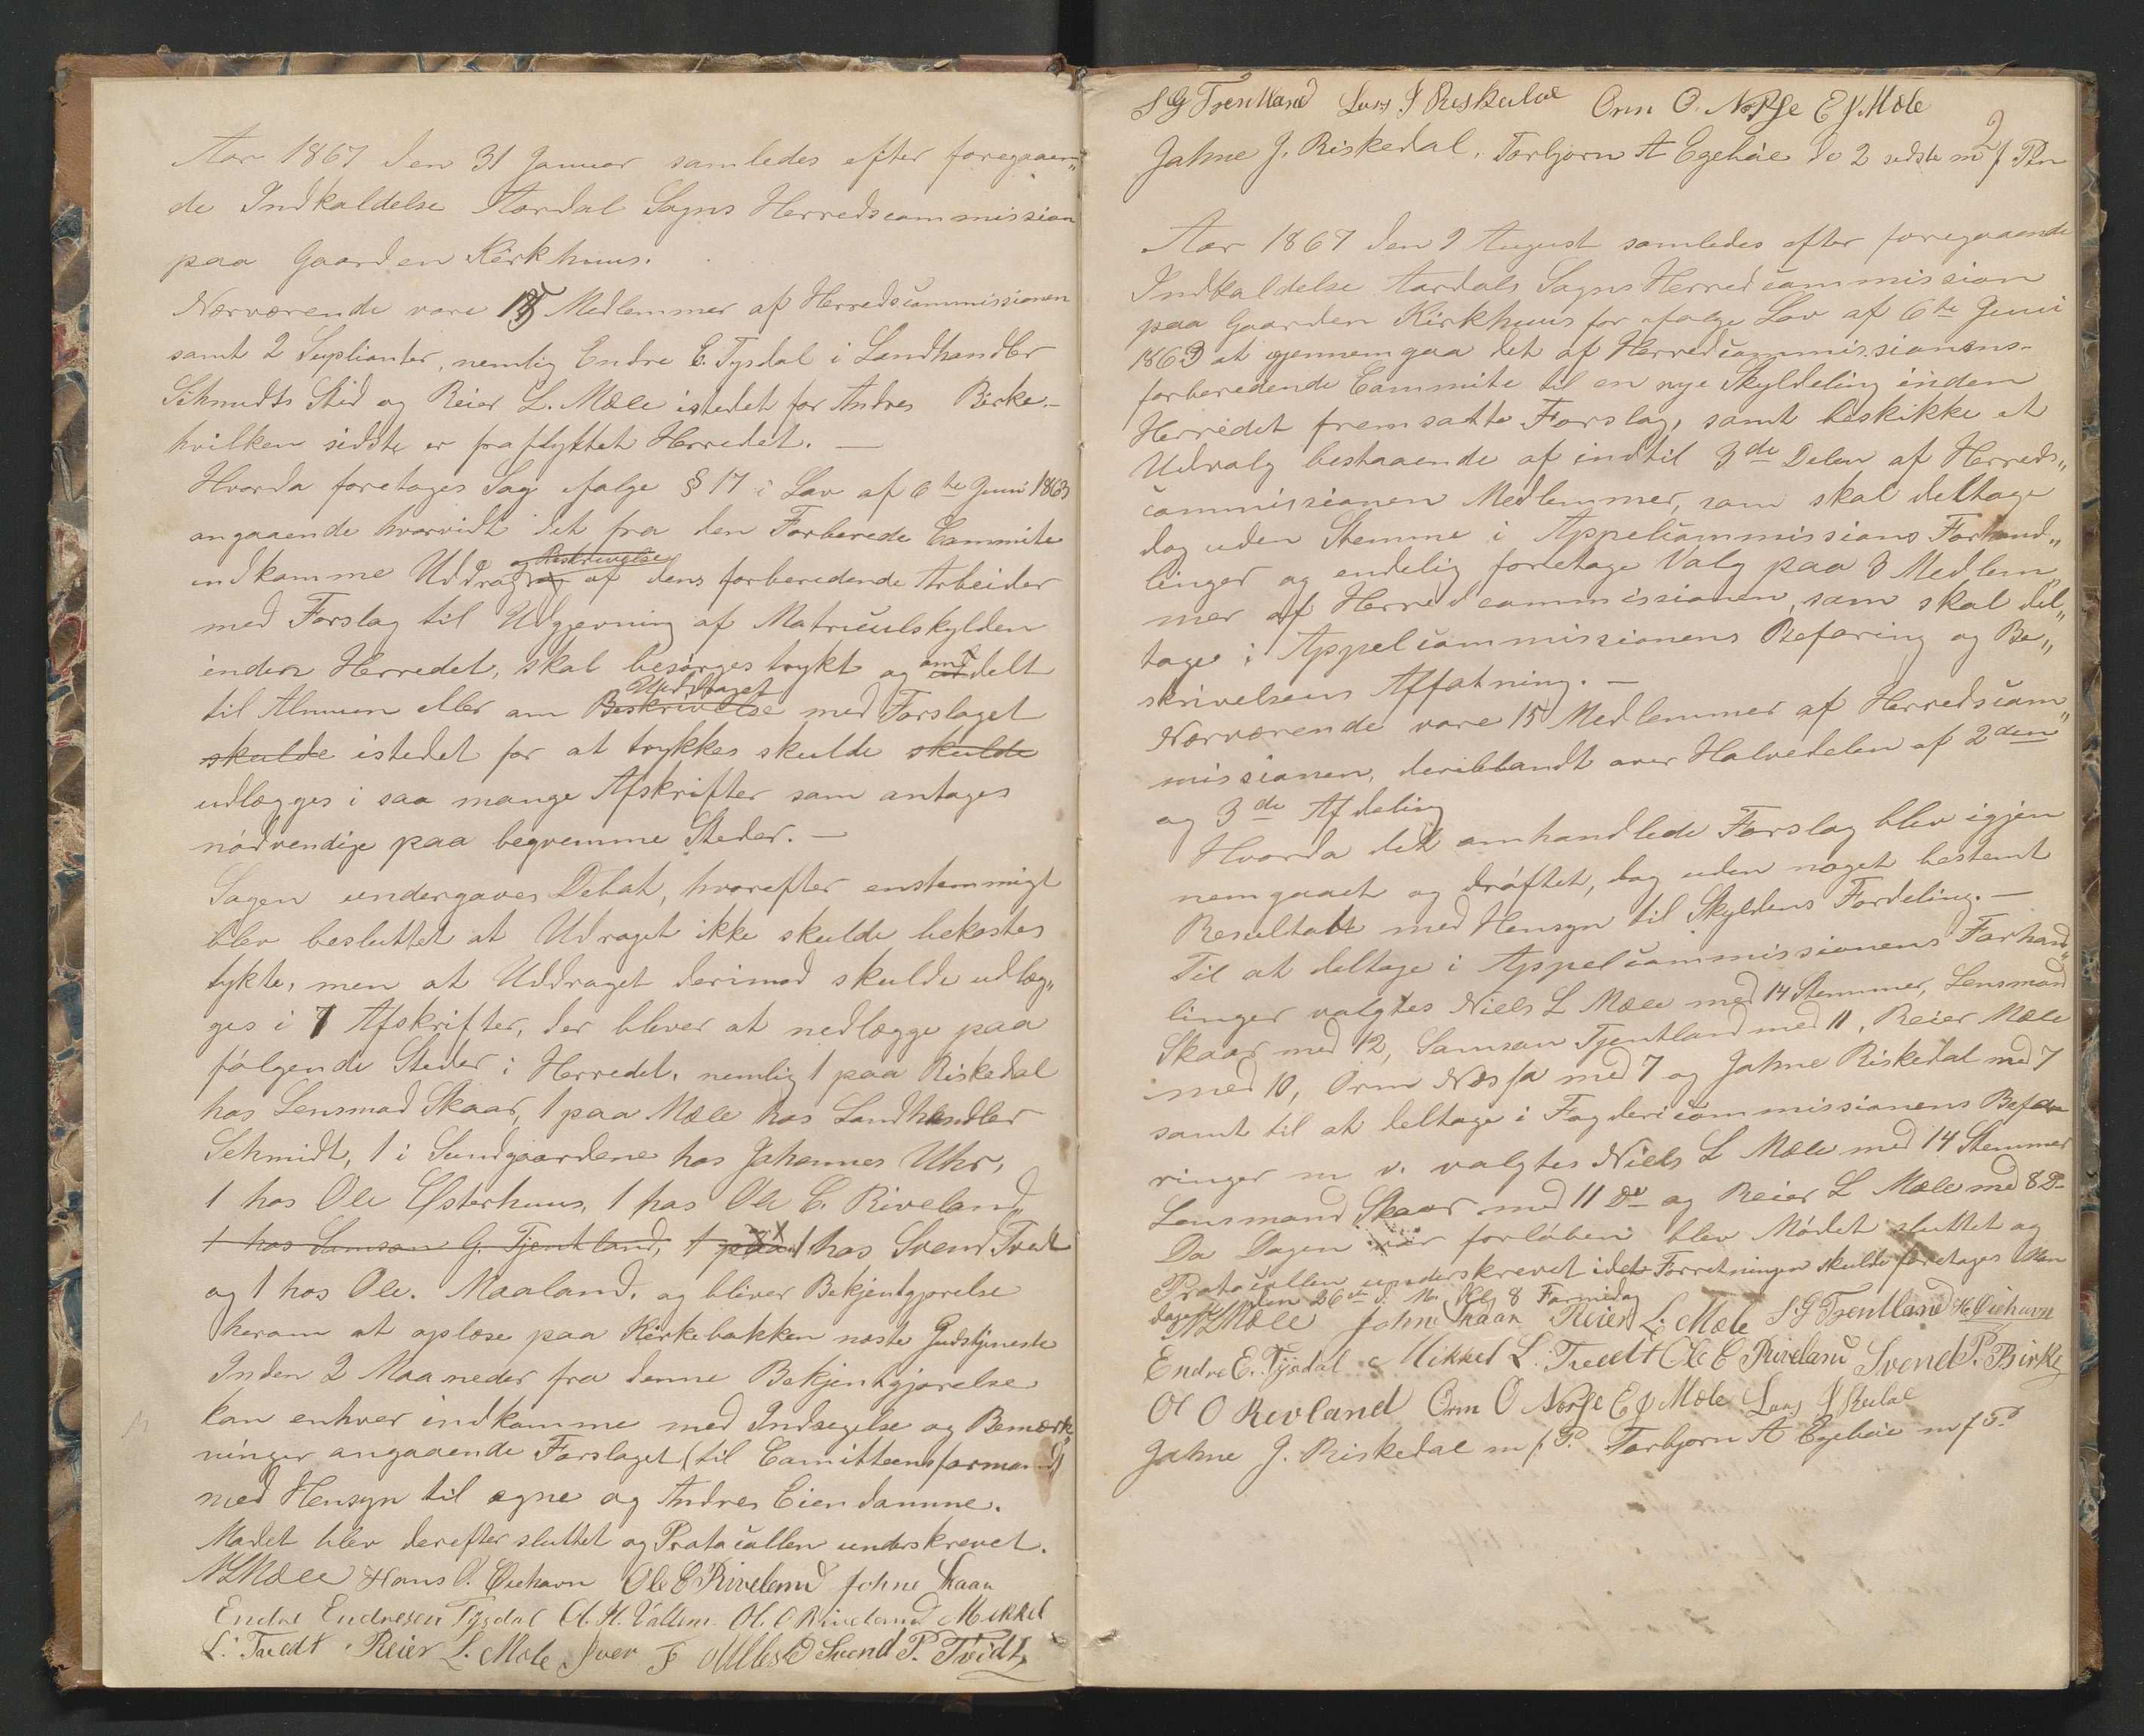 Aar 1867 den 31 Januar samledes efter foregaaen„
de Indkaldelse Aardal Sogns Herredscommission
paa Gaarden Kirkhuus.
Nærværende vare 15 Medlemmer af Herredscommissionen
samt 2 Suplianter, nemlig Endre E. Tysdal i Landhandler
Schmidts Sted og Reier L. Mæle istedet for Andres Birke -
hvilken sidste er fraflyttet Herredet. —
Hvorda foretages Sag ifølge § 17 i Lov af 6te Juni 1863
angaaende hvorvidt det fra den Forberede Committe
indkomne Uddrag og Beskrivelse af dens forberedende Arbeider
med Forslag til Udgjevning af Matriculskylden
inden Herredet, skal besørges trykt og omdelt
til Almuen eller om Beskrivelse Uddraget med Forslaget
skulde istedet for at trykkes skulde skulde
udlægges i saa mange Afskrifter som antages
nødvendige paa beqvemme Steder. —
Sagen undergaves Debat, hvorefter enstemmigt
blev besluttet at Udraget ikke skulde bekostes
tykte, men at Uddraget derimod skulde udlæg„
ges i 7 Afskrifter, der bliver at nedlægge paa
følgende Steder i Herredet, nemlig 1 paa Riskedal
hos Lensmad Skaar, 1 paa Mæle hos Landhandler
Schmidt, 1 i Sundgaardene hos Johannes Uhr,
1 hos Ole Østerhuus, 1 hos Ole C. Riveland,
1 hos Samson G. Tjentland, 1 paa 1 hos Svend Tvedt
og 1 hos Ole. Maaland. og bliver Bekjentgjørelse
herom at oplæse paa Kirkebakken næste Gudstjeneste
Inden 2 Maaneder fra denne Bekjentgjørelse
kan enhver indkomme med Indsegelse og Bemærk„
ninger angaaende Forslaget (til Comitteens formand)
med Hensyn til egne og Andres Eiendomme.
Mødet blev derefter sluttet og Protocollen underskrevet.
NLMæle Hans O. Øiehavn Ole C Riveland Johne Skaar
Endre Endresen Tysdal Ol. H. Vallem Ol. O Riveland Mikkel
L. Tvedt Reier L. Mæle Iver F Svend P. Tveidt
S G Tjentland Lars J Riskedal Orm O. Næsse E J Mæle
2
Johne J. Riskedal. Torbjørn A Egehøie de 2 sidste m f Pen
Aar 1867 den 9 August samledes efter foregaaende
Indkaldelse Aardals Sogns Herredcommission
paa Gaarden Kirkhuus for ifølge Lov af 6te Juni
1863 at gjennemgaa det af Herredcommissionens-
forberedende Committe til en nye Skyldeling inden
Herredet fremsatte Forslag, samt beskikke et
Udvalg bestaaende af indtil 3de Delen af Herreds„
commissionen Medlemmer, som skal deltage
dog uden Stemme i Appelcommissions Forhand„
linger og endelig foretage Valg paa 3 Medlem„
mer af Herredcommissionen, som skal del„
tage i Appelcommissionens Befaring og Be„
skrivelsens Affatning. —
Nærværende vare 15 Medlemmer af Herredscom„
missionen, deriblandt over Halvedelen af 2den
og 3de Afdeling
Hvorda det omhandlede Forslag blev igjen
nemgaaet og drøftet, dog uden noget bestemt
Resultatt med Hensyn til Skyldens Fordeling. —
Til at deltage i Appelcommissionens Forhand„
linger valgtes Niels L Mæle med 14 Stemmer, Lensmand
Skaar med 12, Samson Tjentland med 11, Reier Mæle
med 10, Orm Næssa med 7 og Johne Riskedal med 7
samt til at deltage i Fogdericommissionens Befa
ringer m v. valgtes Niels L Mæle med 14 Stemmer
Lensmand Skaar med 11 Do og Reier L Mæle med 8 Do
Da Dagen var forløben blev Mødet sluttet og
Protocollen underskrevet idet Forretningen skulde foretages Man
dag den 26de d. M. Kl 8 Formidag
NLMæle Johne Skaar Reier L. Mæle S G Tjentland H. Øiehavn
Endre E. Tysdal Mikkel L. Tvedt Ole C Riveland Svend P. Birke
Ol O Revland Orm O Næsse E J Mæle Lars J Riskedal
Johne J. Riskedal m f P. Torbjørn A Egehøie m f P.